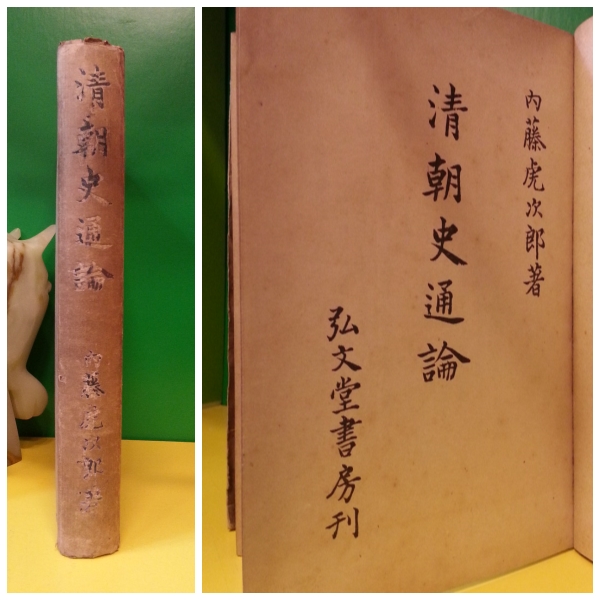 清朝史通論
内藤虎次郎著
内藤虎次郎著
清朝史通論
弘文堂書房刊